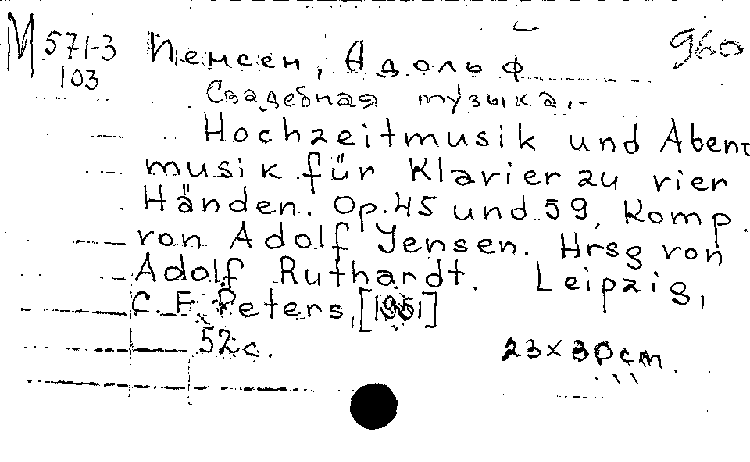 М 571-3 Иенсен, Адольф 960
103
Свадебная музыка.-
Hochzeitmusik und Abent
musik für Klavier zu vier
Händen. Op. 45 und 59, Komp.
von Adolf Jensen. Hrsg von
Adolf Ruthardt. Leipzig,
C. F. Peters, [1951]
52 c. 23×30cm.